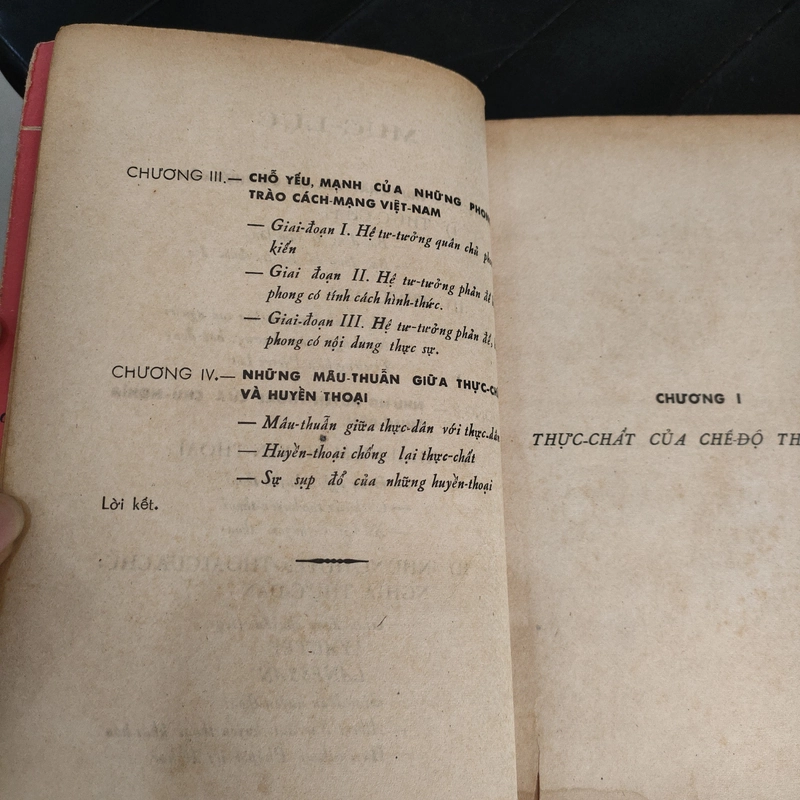 CHƯƠNG III.— CHỖ YẾU, MẠNH CỦA NHỮNG PHON
TRÀO CÁCH-MẠNG VIỆT-NAM
— Giai-đoạn I. Hệ tư-tưởng quân chủ
kiến
— Giai đoạn II. Hệ tư-tưởng phản đế
phong có tính cách hình-thức.
— Giai-đoạn III. Hệ tư-tưởng phản đế,
phong có nội dung thực sự.
CHƯƠNG IV.— NHỮNG MÂU-THUẪN GIỮA THỰC-C
VÀ HUYỀN THOẠI
— Mâu-thuẫn giữa thực-dân với thực-dân
— Huyền-thoại chống lại thực-chất
— Sự sụp đổ của những huyền-thoại
Lời kết.
CHƯƠNG I
THỰC-CHẤT CỦA CHẾ-ĐỘ TH